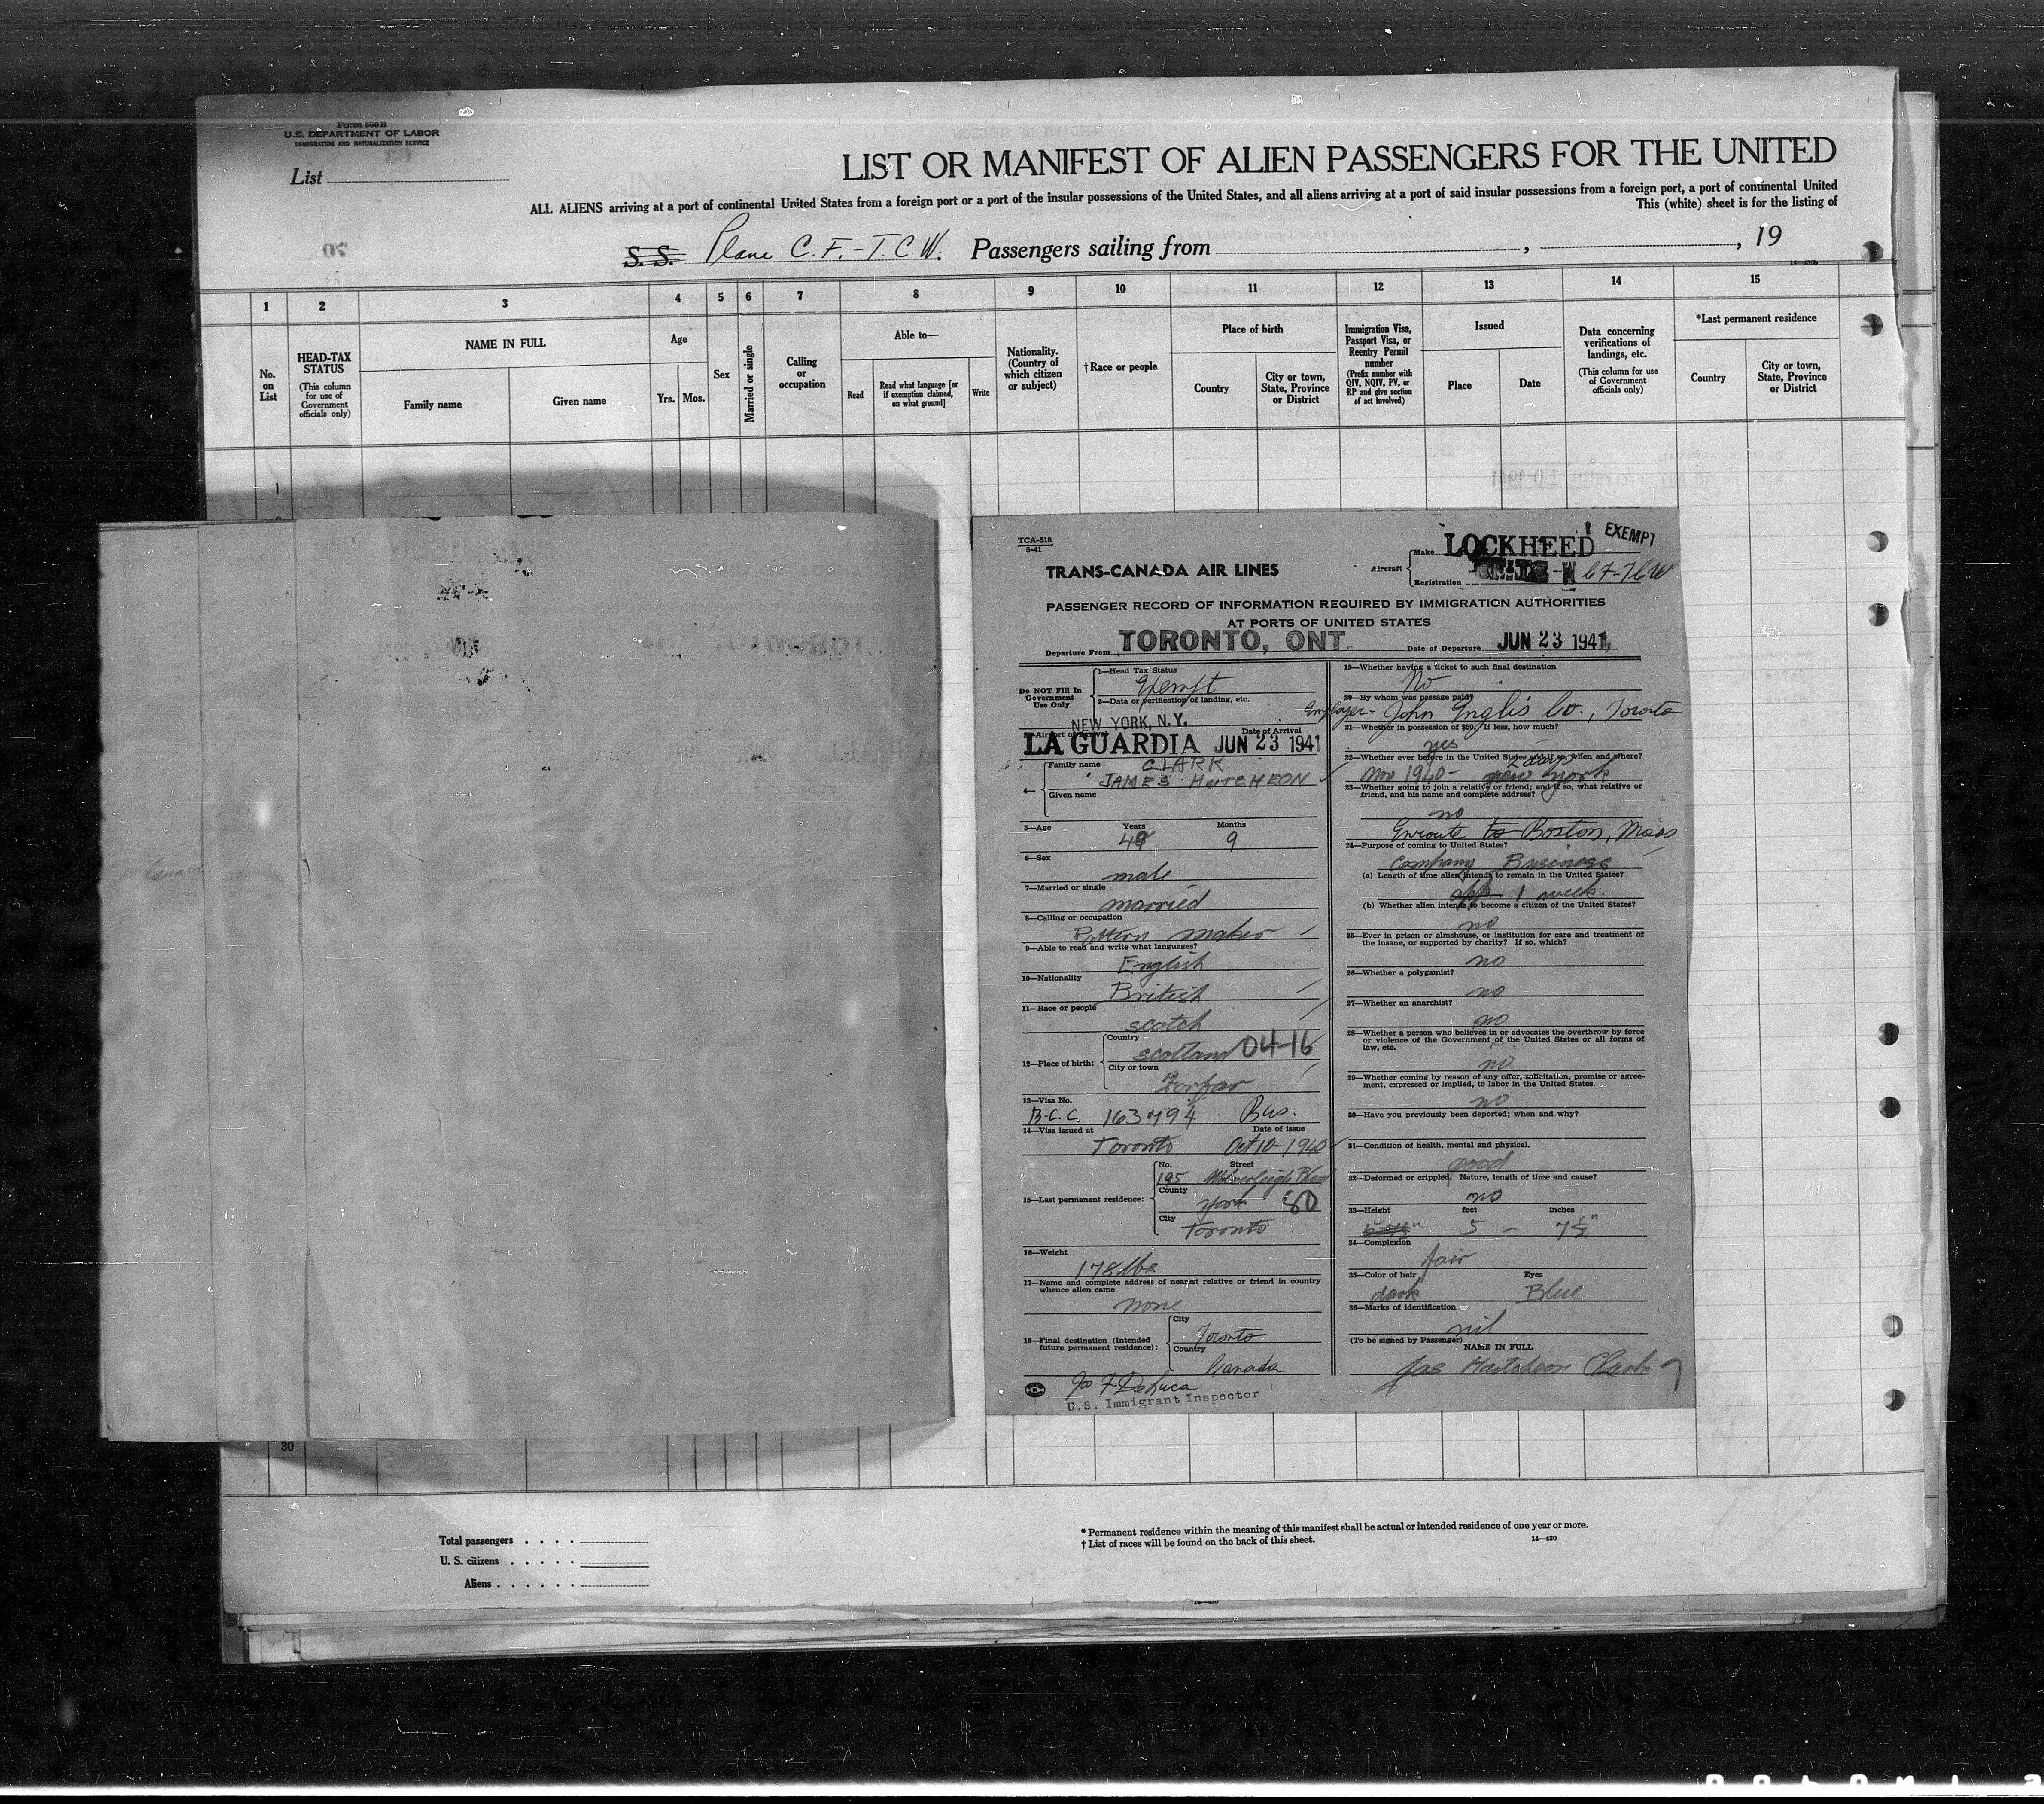 Form 500 B
U.S. DEPARTMENT OF LABOR
IMMIGRATION AND NATURALIZATION SERVICE
List
LIST OR MANIFEST OF ALIEN PASSENGERS FOR THE UNITED
ALL ALIENS arriving at a port of continental United States from a foreign port or a port of the insular possessions of the United States, and all aliens arriving at a port of said insular possessions from a foreign port, a port of continental United
This (white) sheet is for the listing of
S.S. Plane C.F.-T.C.W. Passengers sailing from , , 19
1 2 3 4 5 6 7 8 9 10 11 12 13 14 15
No. on List
HEAD-TAX STATUS
(This column for use of Government officials only)
NAME IN FULL
Family name
Given name
Age
Yrs. Mos.
Sex
Married or single
Calling or occupation
Able to—
Read
Read what language [or if exemption claimed, on what ground]
Write
Nationality. (Country of which citizen or subject)
†Race or people
Place of birth
Country
City or town, State, Province or District
Immigration Visa, Passport Visa, or Reentry Permit number
(Prefix number with QIV, NQIV, PV, or RP and give section of act involved)
Issued
Place
Date
Data concerning verifications of landings, etc.
(This column for use of Government officials only)
*Last permanent residence
Country
City or town, State, Province or District
1
TCA-518
5-41
TRANS-CANADA AIR LINES
Aircraft
Make LOCKHEED
EXEMPT
Registration CF-TCW
PASSENGER RECORD OF INFORMATION REQUIRED BY IMMIGRATION AUTHORITIES
AT PORTS OF UNITED STATES
Departure From TORONTO, ONT. Date of Departure JUN 23 1941
Do NOT Fill In
Government
Use Only
1—Head Tax Status
Exempt
2—Data or verification of landing, etc.
NEW YORK, N.Y.
Airport of Arrival Date of Arrival
LA GUARDIA JUN 23 1941
4—
Family name CLARK
JAMES HUTCHEON
Given name
5—Age Years Months
48 9
6—Sex
male
7—Married or single
married
8—Calling or occupation
Pattern maker
9—Able to read and write what languages?
English
10—Nationality
British
11—Race or people
scotch
12—Place of birth:
Country
scotland 04-16
City or town
Forfar
13—Visa No.
B.C.C. 163494 Bus.
14—Visa issued at Date of issue
Toronto Oct 10-1940
15—Last permanent residence:
No. Street
195
County
york 80
City
Toronto
16—Weight
178 lbs
17—Name and complete address of nearest relative or friend in country
whence alien came
none
18—Final destination (Intended
future permanent residence):
City
Toronto
Country
Canada
Jos F. DeLuca
U.S. Immigrant Inspector
19—Whether having a ticket to such final destination
No
20—By whom was passage paid?
Employer- John Inglis Co., Toronto
21—Whether in possession of $50. If less, how much?
yes
22—Whether ever before in the United States and if so, when and where?
Nov 1940- new york
23—Whether going to join a relative or friend; and if so, what relative or
friend, and his name and complete address?
no
Enroute to Boston, Mass
24—Purpose of coming to United States?
Company Business
(a) Length of time alien intends to remain in the United States?
app 1 week.
(b) Whether alien intends to become a citizen of the United States?
no
25—Ever in prison or almshouse, or institution for care and treatment of
the insane, or supported by charity? If so, which?
no
26—Whether a polygamist?
no
27—Whether an anarchist?
no
28—Whether a person who believes in or advocates the overthrow by force
or violence of the Government of the United States or all forms of
law, etc.
no
29—Whether coming by reason of any offer, solicitation, promise or agree-
ment, expressed or implied, to labor in the United States.
no
30—Have you previously been deported; when and why?
31—Condition of health, mental and physical.
good
32—Deformed or crippled. Nature, length of time and cause?
no
33—Height feet inches
5 - 7½"
34—Complexion
fair
35—Color of hair Eyes
dark Blue
36—Marks of identification
nil
(To be signed by Passenger)
NAME IN FULL
Jas Hutcheon Clark
30
Total passengers
U. S. citizens
Aliens
* Permanent residence within the meaning of this manifest shall be actual or intended residence of one year or more.
† List of races will be found on the back of this sheet.
14—420